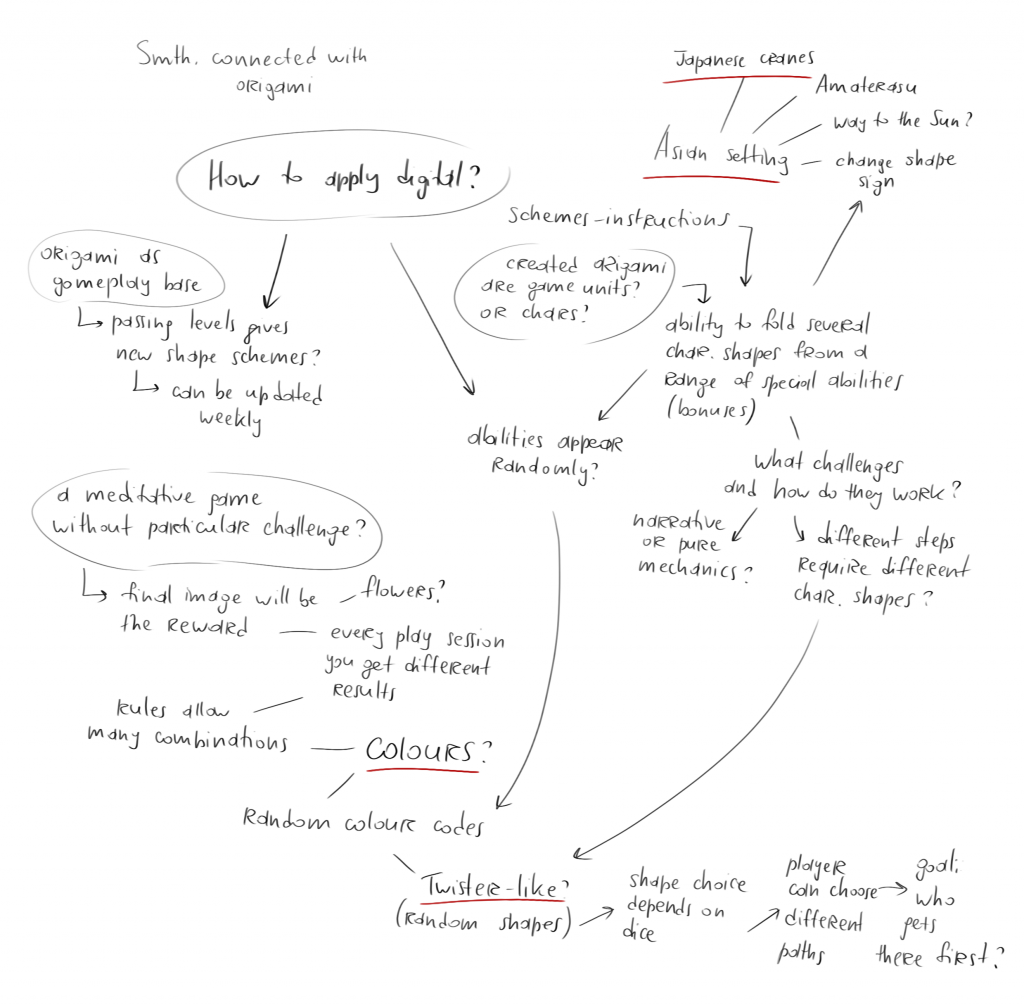 Smth. connected with
origami
How to apply digital?
origami as
gameplay base
passing levels gives
new shape schemes?
can be updated
weekly
Japanese cranes
Amaterasu
way to the Sun?
Asian setting
change shape
sign
schemes-instructions
created origami
are game units?
or chars?
ability to fold several
char. shapes from a
range of special abilities
(bonuses)
abilities appear
randomly?
what challenges
and how do they work?
narrative
or pure
mechanics?
different steps
require different
char. shapes?
a meditative game
without particular challenge?
final image will be
the reward
flowers?
every play session
you get different
results
rules allow
many combinations
COLOURS?
random colour codes
Twister-like?
(random shapes)
shape choice
depends on
dice
player
can choose
different
paths
goal:
who
gets
there first?